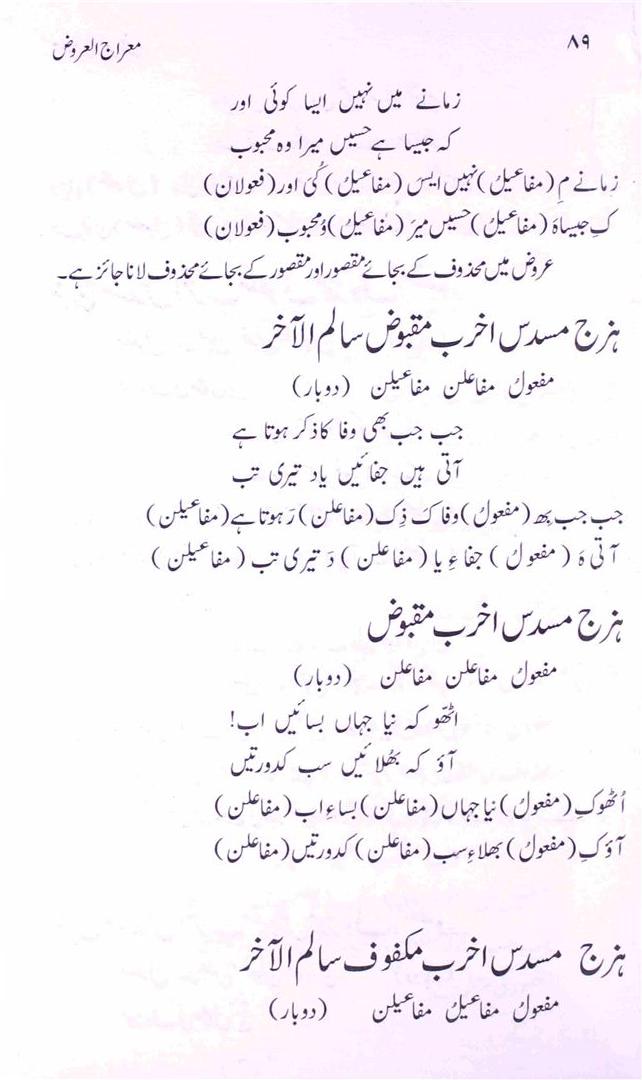 ۸۹
معراج العروض
زمانے میں نہیں ایسا کوئی اور
کہ جیسا ہے حسیں میرا وہ محبوب
زمانے مِ (مفاعیلُ) نہیں ایسَ (مفاعیلُ) کُئ اور (فعولان)
کِ جیساہَ (مفاعیلُ) حسیں میرَ (مفاعیلُ) وُمحبوب (فعولان)
عروض میں محذوف کے بجائے مقصور اور مقصور کے بجائے محذوف لانا جائز ہے۔
ہزج مسدس اخرب مقبوض سالم الآخر
مفعولُ مفاعلن مفاعیلن (دوبار)
جب جب بھی وفا کا ذکر ہوتا ہے
آتی ہیں جفائیں یاد تیری تب
جب جب بھِ (مفعولُ) وفا کَ ذِک (مفاعلن) رَ ہوتا ہے (مفاعیلن)
آتی ہَ (مفعولُ) جفاءِ یا (مفاعلن) دَ تیری تب (مفاعیلن)
ہزج مسدس اخرب مقبوض
مفعولُ مفاعلن مفاعلن (دوبار)
اٹھّو کہ نیا جہاں بسائیں اب!
آؤ کہ بھُلائیں سب کدورتیں
اُٹھوکِ (مفعولُ) نیا جہاں (مفاعلن) بساءِ اب (مفاعلن)
آؤکِ (مفعولُ) بھلاءِ سب (مفاعلن) کدورتیں (مفاعلن)
ہزج مسدس اخرب مکفوف سالم الآخر
مفعولُ مفاعیلُ مفاعیلن (دوبار)